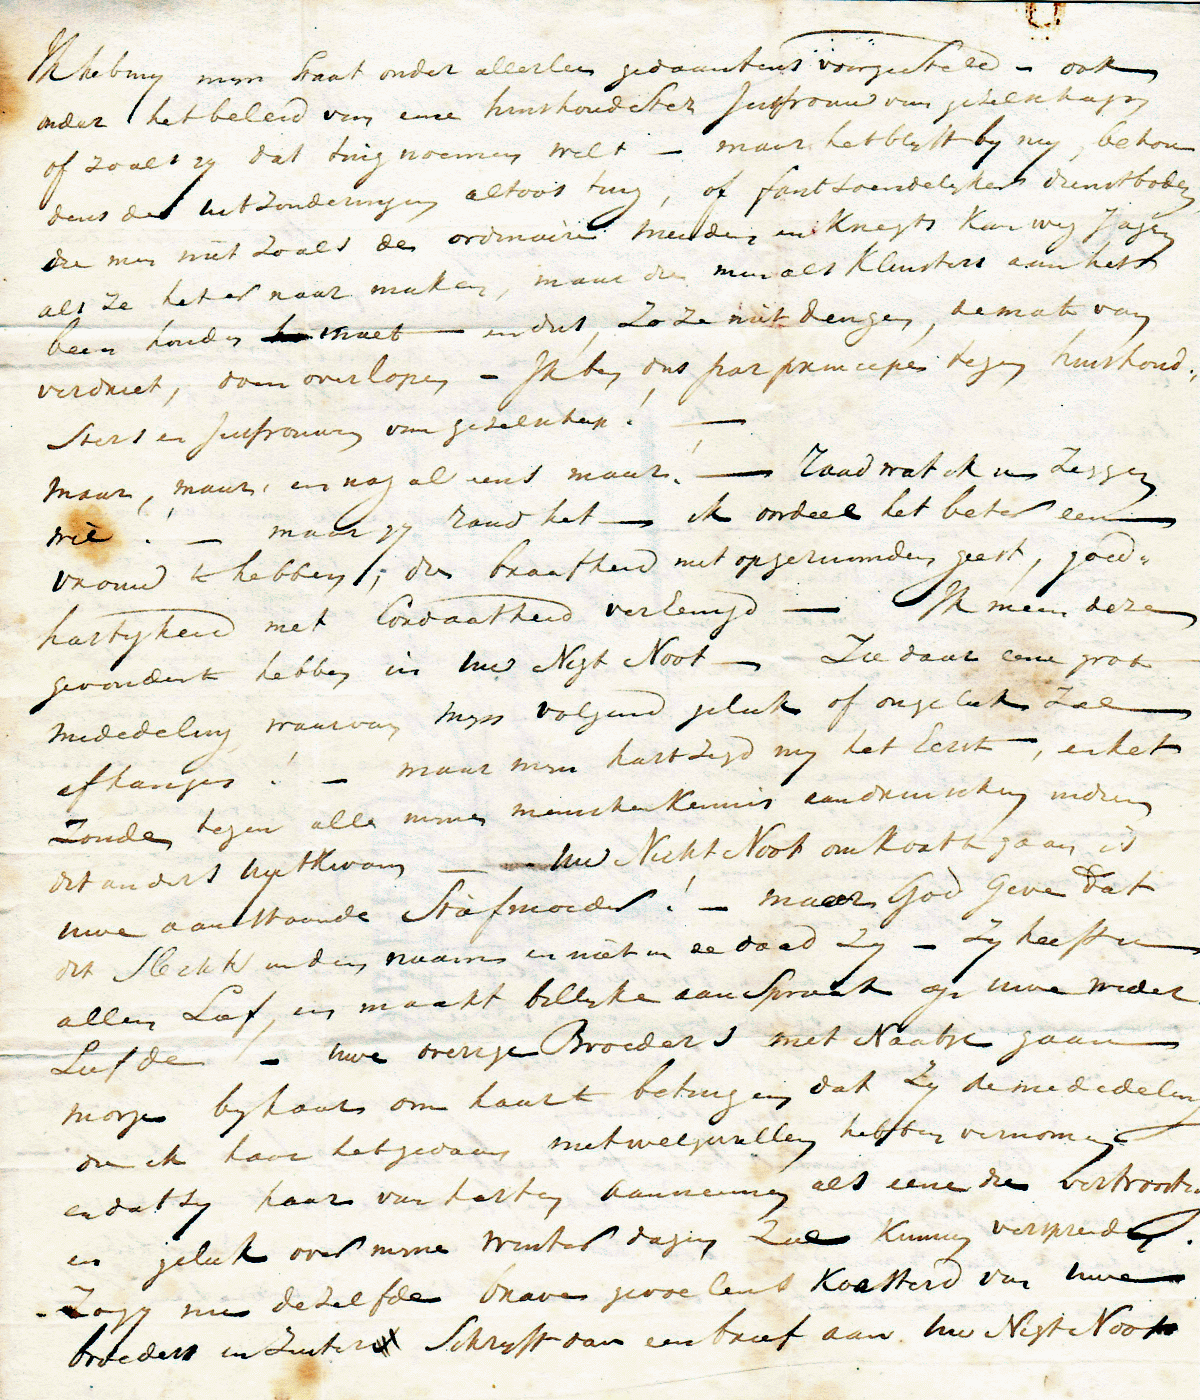 Ik heb my myn Staat onder allerley gedaantens voorgesteld – ook
onder het beleid van eene huishoudster Juffrouw van gezelschap,
of zoals gy dat tuig noemen wilt – maar het blyft by my, behou
dens des uitzonderingen altoos tuig, of fantsoendelyker dienstboden
die men niet zoals de ordinaire meiden en Knegts Kan weg Jagen
als ze het er naar maken, maar die men als Kluisters aan het
been houden moet – en dus, Zo ze niet deugen, de mate van
verdriet, doen overlopen – Ik ben dus par principes tegen huishoud„
Sters en Juffrouwen van gezelschap! –
maar, maar, en nog al eens maar! – Raad wat ik u Zeggen
wil! – maar gy raad het – ik oordeel het beter eene
vrouw te hebben, die braafheid met opgeruimden geest, goed„
hartigheid met Cordaatheid verEenigd – Ik meen deze
gevonden te hebben in uw Nigt Noot – Zie daar eene grote
mededeling, waarvan myn volgend geluk of ongeluk Zal
afhangen! – maar myn hart Zegd my het Eerste, en het
Zoude tegen alle myne menschenKennis aandruischen indien
dit anders uytKwam – uw Nicht Noot om Kort te gaan is
uwe aanstaande Stiefmoeder! – maar God Geve dat
dit Slechts in den naam en niet in de daad Zy – Zy heeft u
allen Lief, en maakt billyke aanSpraak op uwe weder
Liefde – uwe overige Broeders met Naatje gaan
morgen by haar om haar te betuigen dat Zy de mededeling
die ik haar heb gedaan met welgevallen hebben vernomen
en dat Zy haar van harten aannemen als eene die vertroosting
en geluk over myne Winter dagen Zal Kunnen verspreiden.
– Zo gy nu dezelfde brave gevoelens Koesterd van uwe
broeders en Zuster Schryft dan een brief aan Uw Nigt Noot